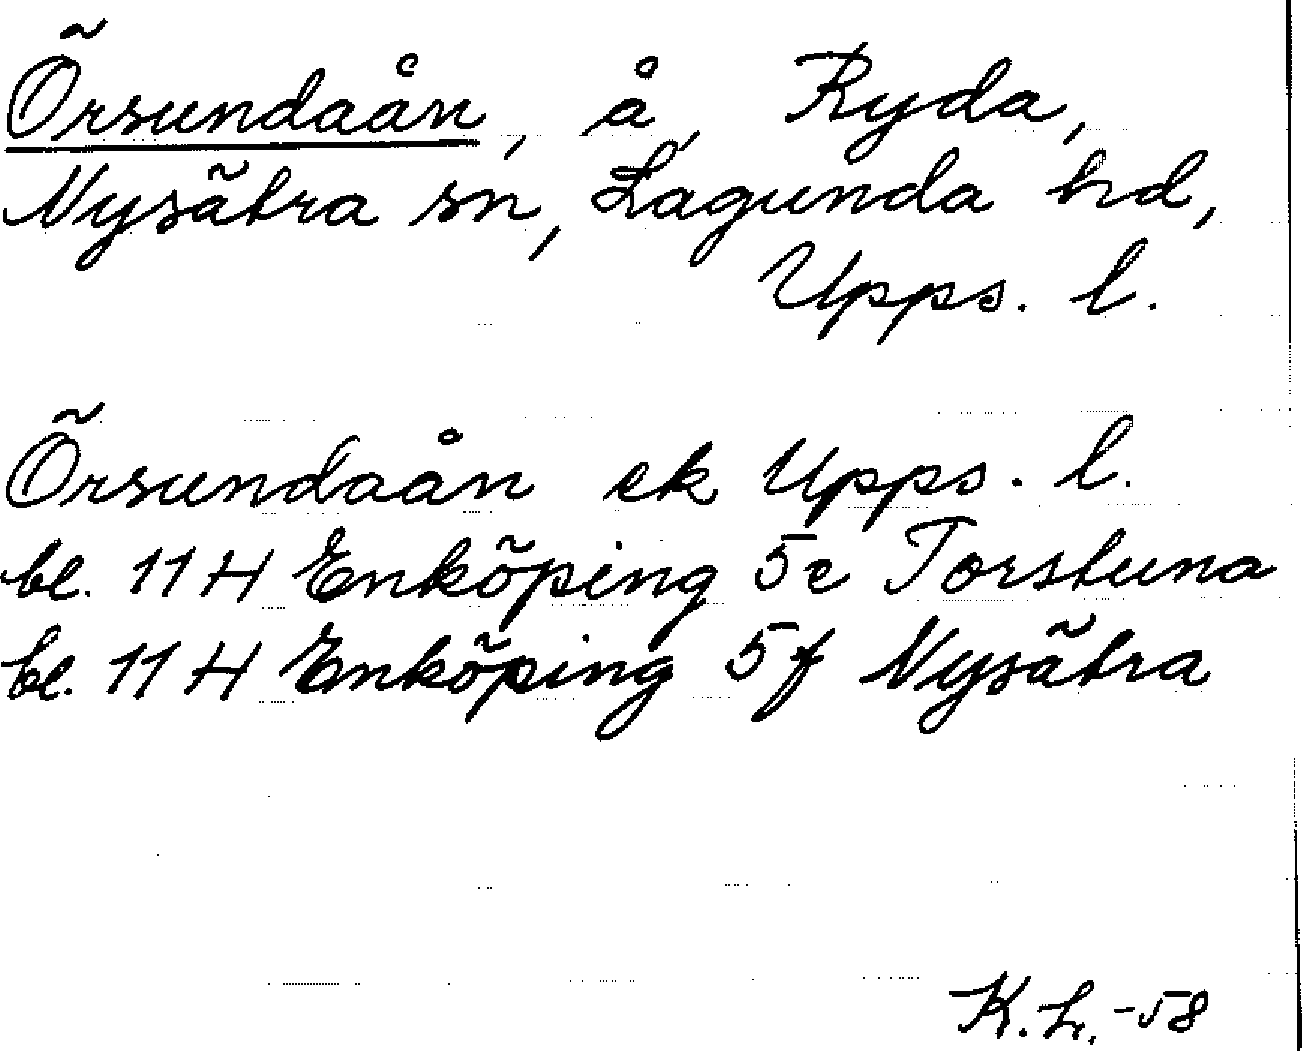 Örsundaån, å, Ryda,
Nysätra sn, Lagunda hd,
Upps. l.
Örsundaån ek Upps. l.
bl. 11 H Enköping 5e Torstuna
bl. 11 H Enköping 5f Nysätra
K.L. -58